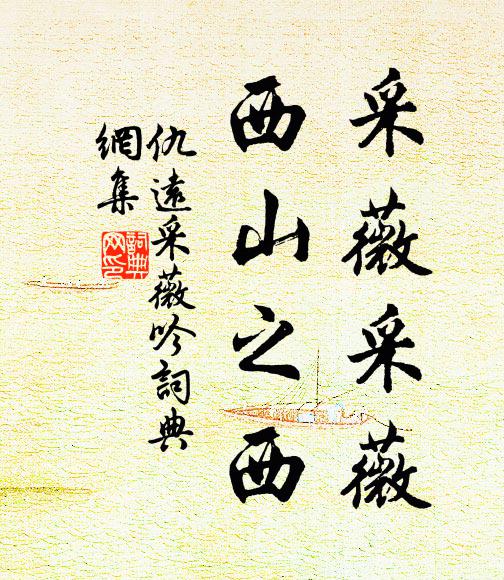 采薇采薇
西山之西
仇遠采薇吟詞典
網集
詞典
网印